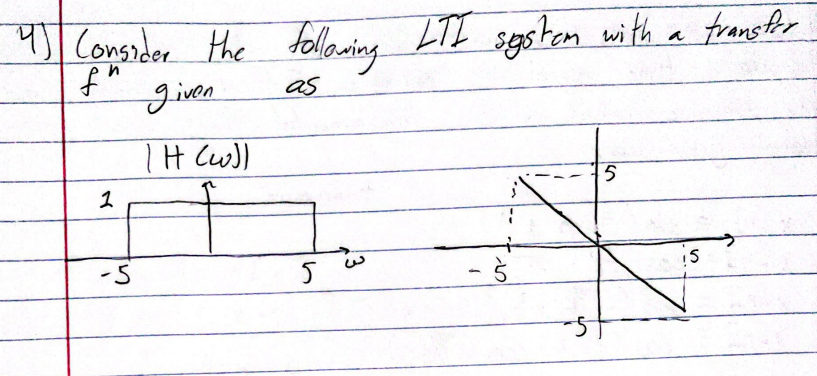 4) Consider the following LTI system with a transfer
fⁿ given as
|H(ω)|
1
-5
5
ω
5
-5
5
-5